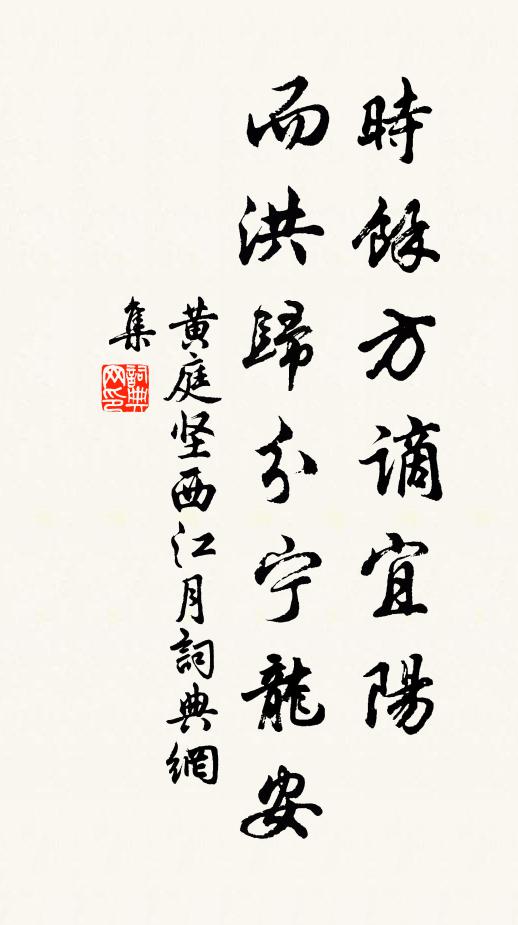 時餘方謫宜陽
而洪歸分宁龍安
黄庭坚西江月詞典網
集
詞典
网印